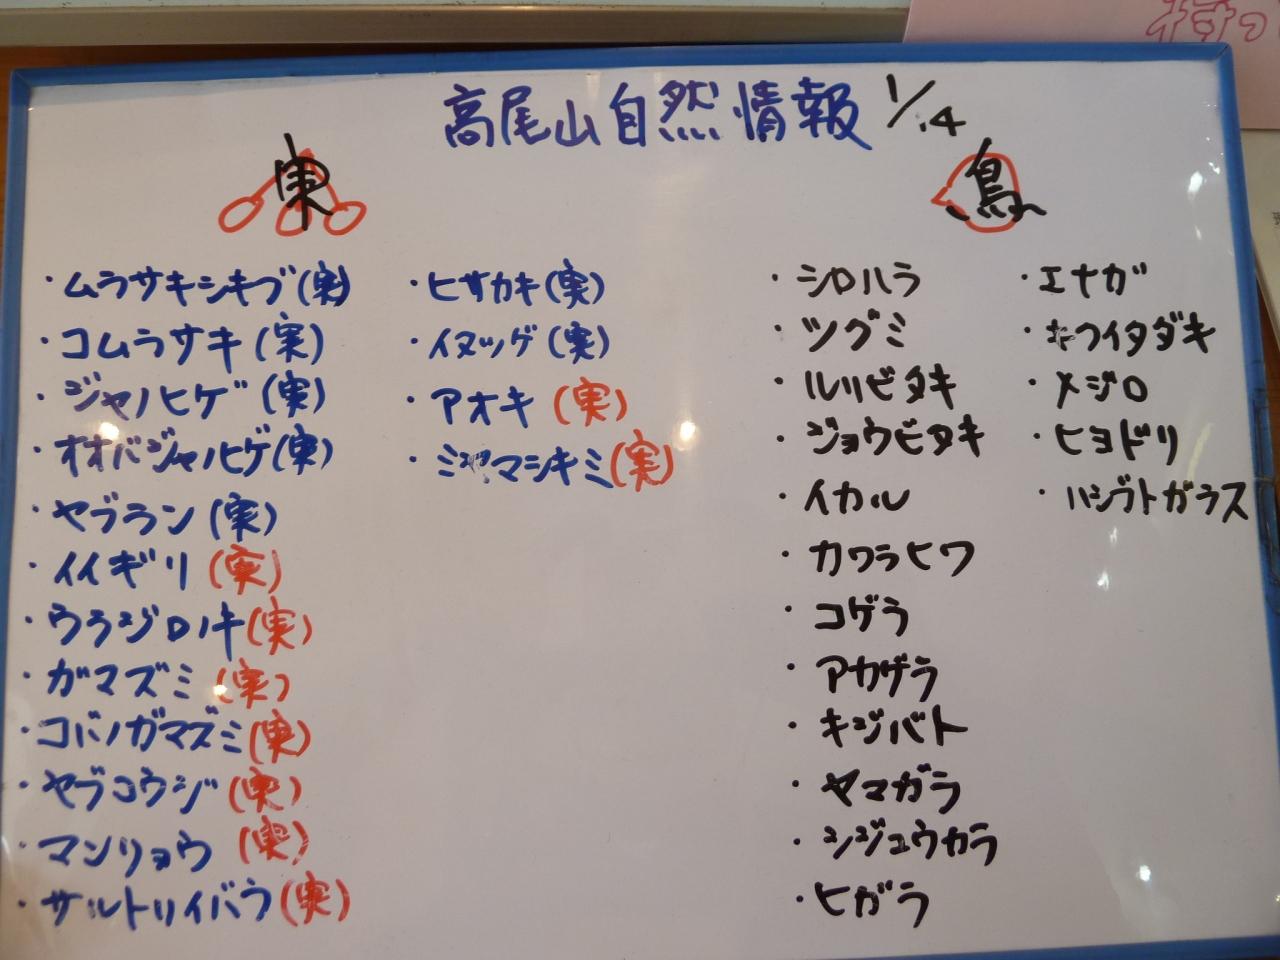 高尾山自然情報 1/14
実
・ムラサキシキブ(実)
・コムラサキ(実)
・ジャノヒゲ(実)
・オオバジャノヒゲ(実)
・ヤブラン(実)
・イイギリ(実)
・ウラジロノキ(実)
・ガマズミ(実)
・コバノガマズミ(実)
・ヤブコウジ(実)
・マンリョウ(実)
・サルトリイバラ(実)
・ヒサカキ(実)
・イヌツゲ(実)
・アオキ(実)
・ミヤマシキミ(実)
鳥
・シロハラ
・ツグミ
・ルリビタキ
・ジョウビタキ
・イカル
・カワラヒワ
・コゲラ
・アカゲラ
・キジバト
・ヤマガラ
・シジュウカラ
・ヒガラ
・エナガ
・キクイタダキ
・メジロ
・ヒヨドリ
・ハシブトガラス